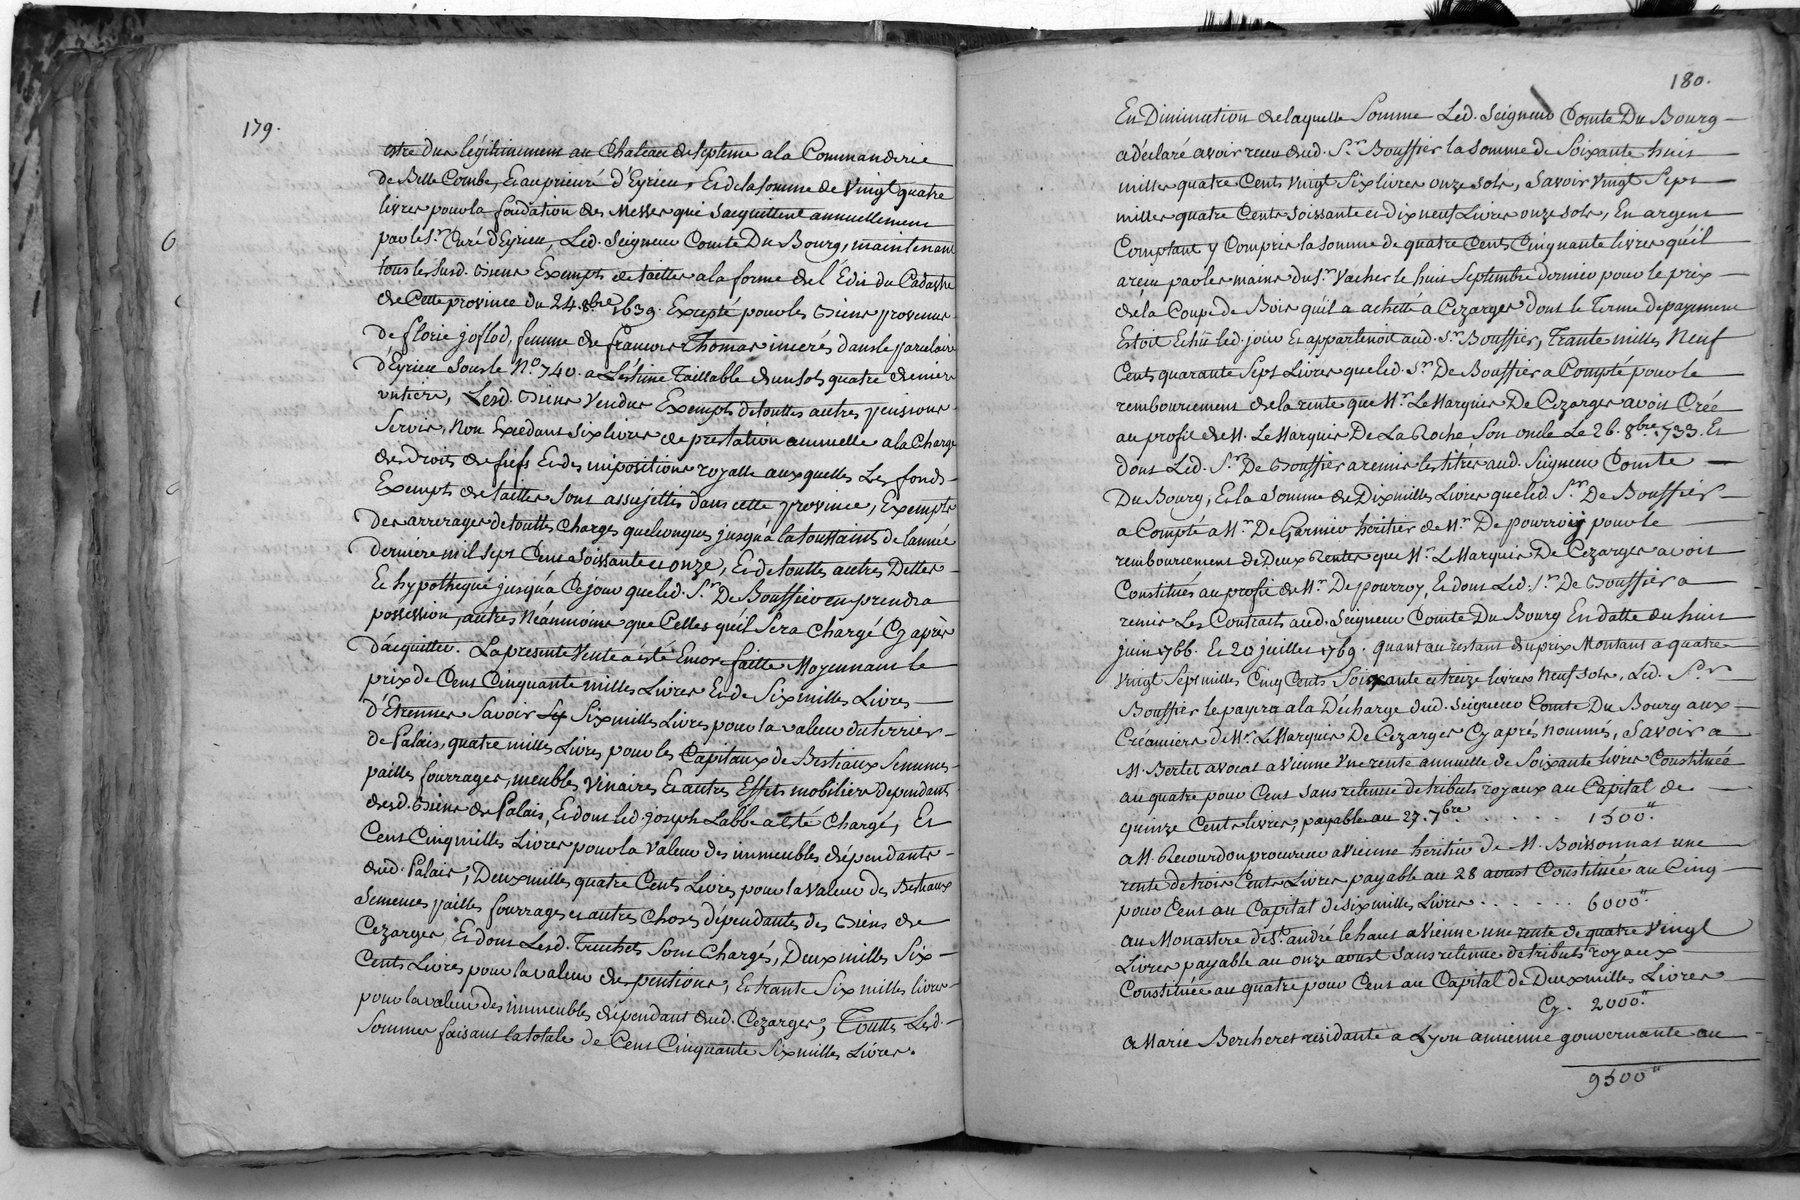 179.
estre dus légitimement au Chateau de Septeme a la Commanderie
de Belle Combe, Et au prieuré d'Eyrieu, Et de la somme de Vingt quatre
livres pour la fondation des Messes qui s'acquittent annuellement
par le Sr. Curé d'Eyrieu, Led. Seigneur Comte Du Bourg, maintenant
tous les susd. Biens Exempts de tailles a la forme de l'Edit du Cadastre
de Cette province du 24. 8bre 1639. Excepté pour les Biens provenus
de florie joflod, femme de francois Thomas inserés dans le parcelaire
D'Eyrieu sous le N.o 740. a L'estime Taillable d'un sols quatre deniers
entiers, Lesd. Biens Vendus Exempts de touttes autres pensions
Servis, Non Excedant six livres de prestation annuelle a la Charge
des Droits de fiefs Et des impositions royalle auxquelles Les fonds
Exempts de tailles sont assujettis dans cette province, Exempts
Des arrerages de touttes Charges quelconques jusqu'à la toussaints de l'année
derniere mil sept Cent soissante et onze, Et de touttes autres Dettes
Et hypotheque jusqu'à Ce jour que led. Sr. De Bouffier en prendra
possession, autres Néanmoins que Celles qu'il sera Chargé Cy après
D'acquitter. La presente Vente a esté Encor faitte Moyennant le
prix de Cent Cinquante milles Livres Et de Six milles Livres
D'Etrennes Savoir Six milles Livres pour la valeur du terrier
de Palais, quatre milles Livres pour les Capitaux de Bestiaux Semences
pailles fourrages, meubles Vinaires Et autres Effets mobiliers dependants
desd. Biens de Palais, Et dont led. joseph Labbe a esté Chargé, Et
Cent Cinq milles Livres pour la Valeur des immeubles dépendants
dud. Palais; Deux milles quatre Cents Livres pour la Valeur des Bestiaux
Semences pailles fourrages et autres Choses dépendantes des Biens de
Cezarges, Et dont Lesd. Truchets sont Chargés, Deux milles Six
Cents Livres pour la valeur des pentions, Et trante Six milles livres
pour la valeur des immeubles dependant dud. Cezarges, Touttes Lesd.
Sommes faisant la totale de Cent Cinquante Six milles Livres.
180.
En Diminution de laquelle Somme Led. Seigneur Comte Du Bourg
a déclaré avoir receu dud. Sr. Bouffier la somme de Soixante huit
milles quatre Cents Vingt Six livres onze sols, Savoir Vingt Sept
milles quatre Cents soissante et dix neuf Livres onze sols, En argent
Comptant y Compris la somme de quatre Cents Cinquante livres qu'il
a receu par les mains du Sr. Vacher le huit Septembre dernier pour le prix
de la Coupe de Bois qu'il a achetté a Cezarges dont le Terme de payement
Estoit Echü led. jour Et appartenoit aud. Sr. Bouffier, Trante milles Neuf
Cents quarante Sept Livres que led. Sr. De Bouffier a Compté pour le
remboursement de la rente que Mr. Le Marquis De Cezarges avoit Créé
au profit de M. Le Marquis De La Roche, Son oncle Le 26. 8bre 1733. Et
dont Led. Sr. De Bouffier a remis les titres aud. Seigneur Comte
Du Bourg, Et la Somme de Dix milles Livres que led. Sr. De Bouffier
a Compté a Mr. De Garnier heritier de Mr. De pourroy pour le
remboursement de Deux Rentes que Mr. Le Marquis De Cezarges avoit
Constitués au profit de Mr. De pourroy, Et dont Led. Sr. De Bouffier a
remis Les Contracts aud. Seigneur Comte Du Bourg En datte du huit
juin 1766. Et 20 juillet 1769. quant au restant du prix Montant a quatre
Vingt Sept milles Cinq Cents Soixante et treize livres Neuf sols, Led. Sr.
Bouffier le payera a la Décharge dud. Seigneur Comte Du Bourg aux
Créanciers de Mr. Le Marquis De Cezarges Cy aprés Nommés, Savoir a
M. Bertet avocat a Vienne Une rente annuelle de Soixante livres Constituée
au quatre pour Cent sans retenue de tributs royaux au Capital de
quinze Cents livres, payable au 27. 7bre. . . . . . 1500.''
a M. Recourdon procureur a Vienne heritier de M. Boissonnat une
rente de trois Cents Livres payable au 28 aoust Constituée au Cinq
pour Cent au Capital de six milles Livres . . . . . . 6000.''
au Monastere de St. andré le haut a Vienne une rente de quatre Vingt
Livres payable au onze aoust sans retenue de tributs royaux
Constituée au quatre pour Cent au Capital de Deux milles Livres
Cy. 2000.''
a Marie Bercheret residante a Lyon ancienne gouvernante au
9500''